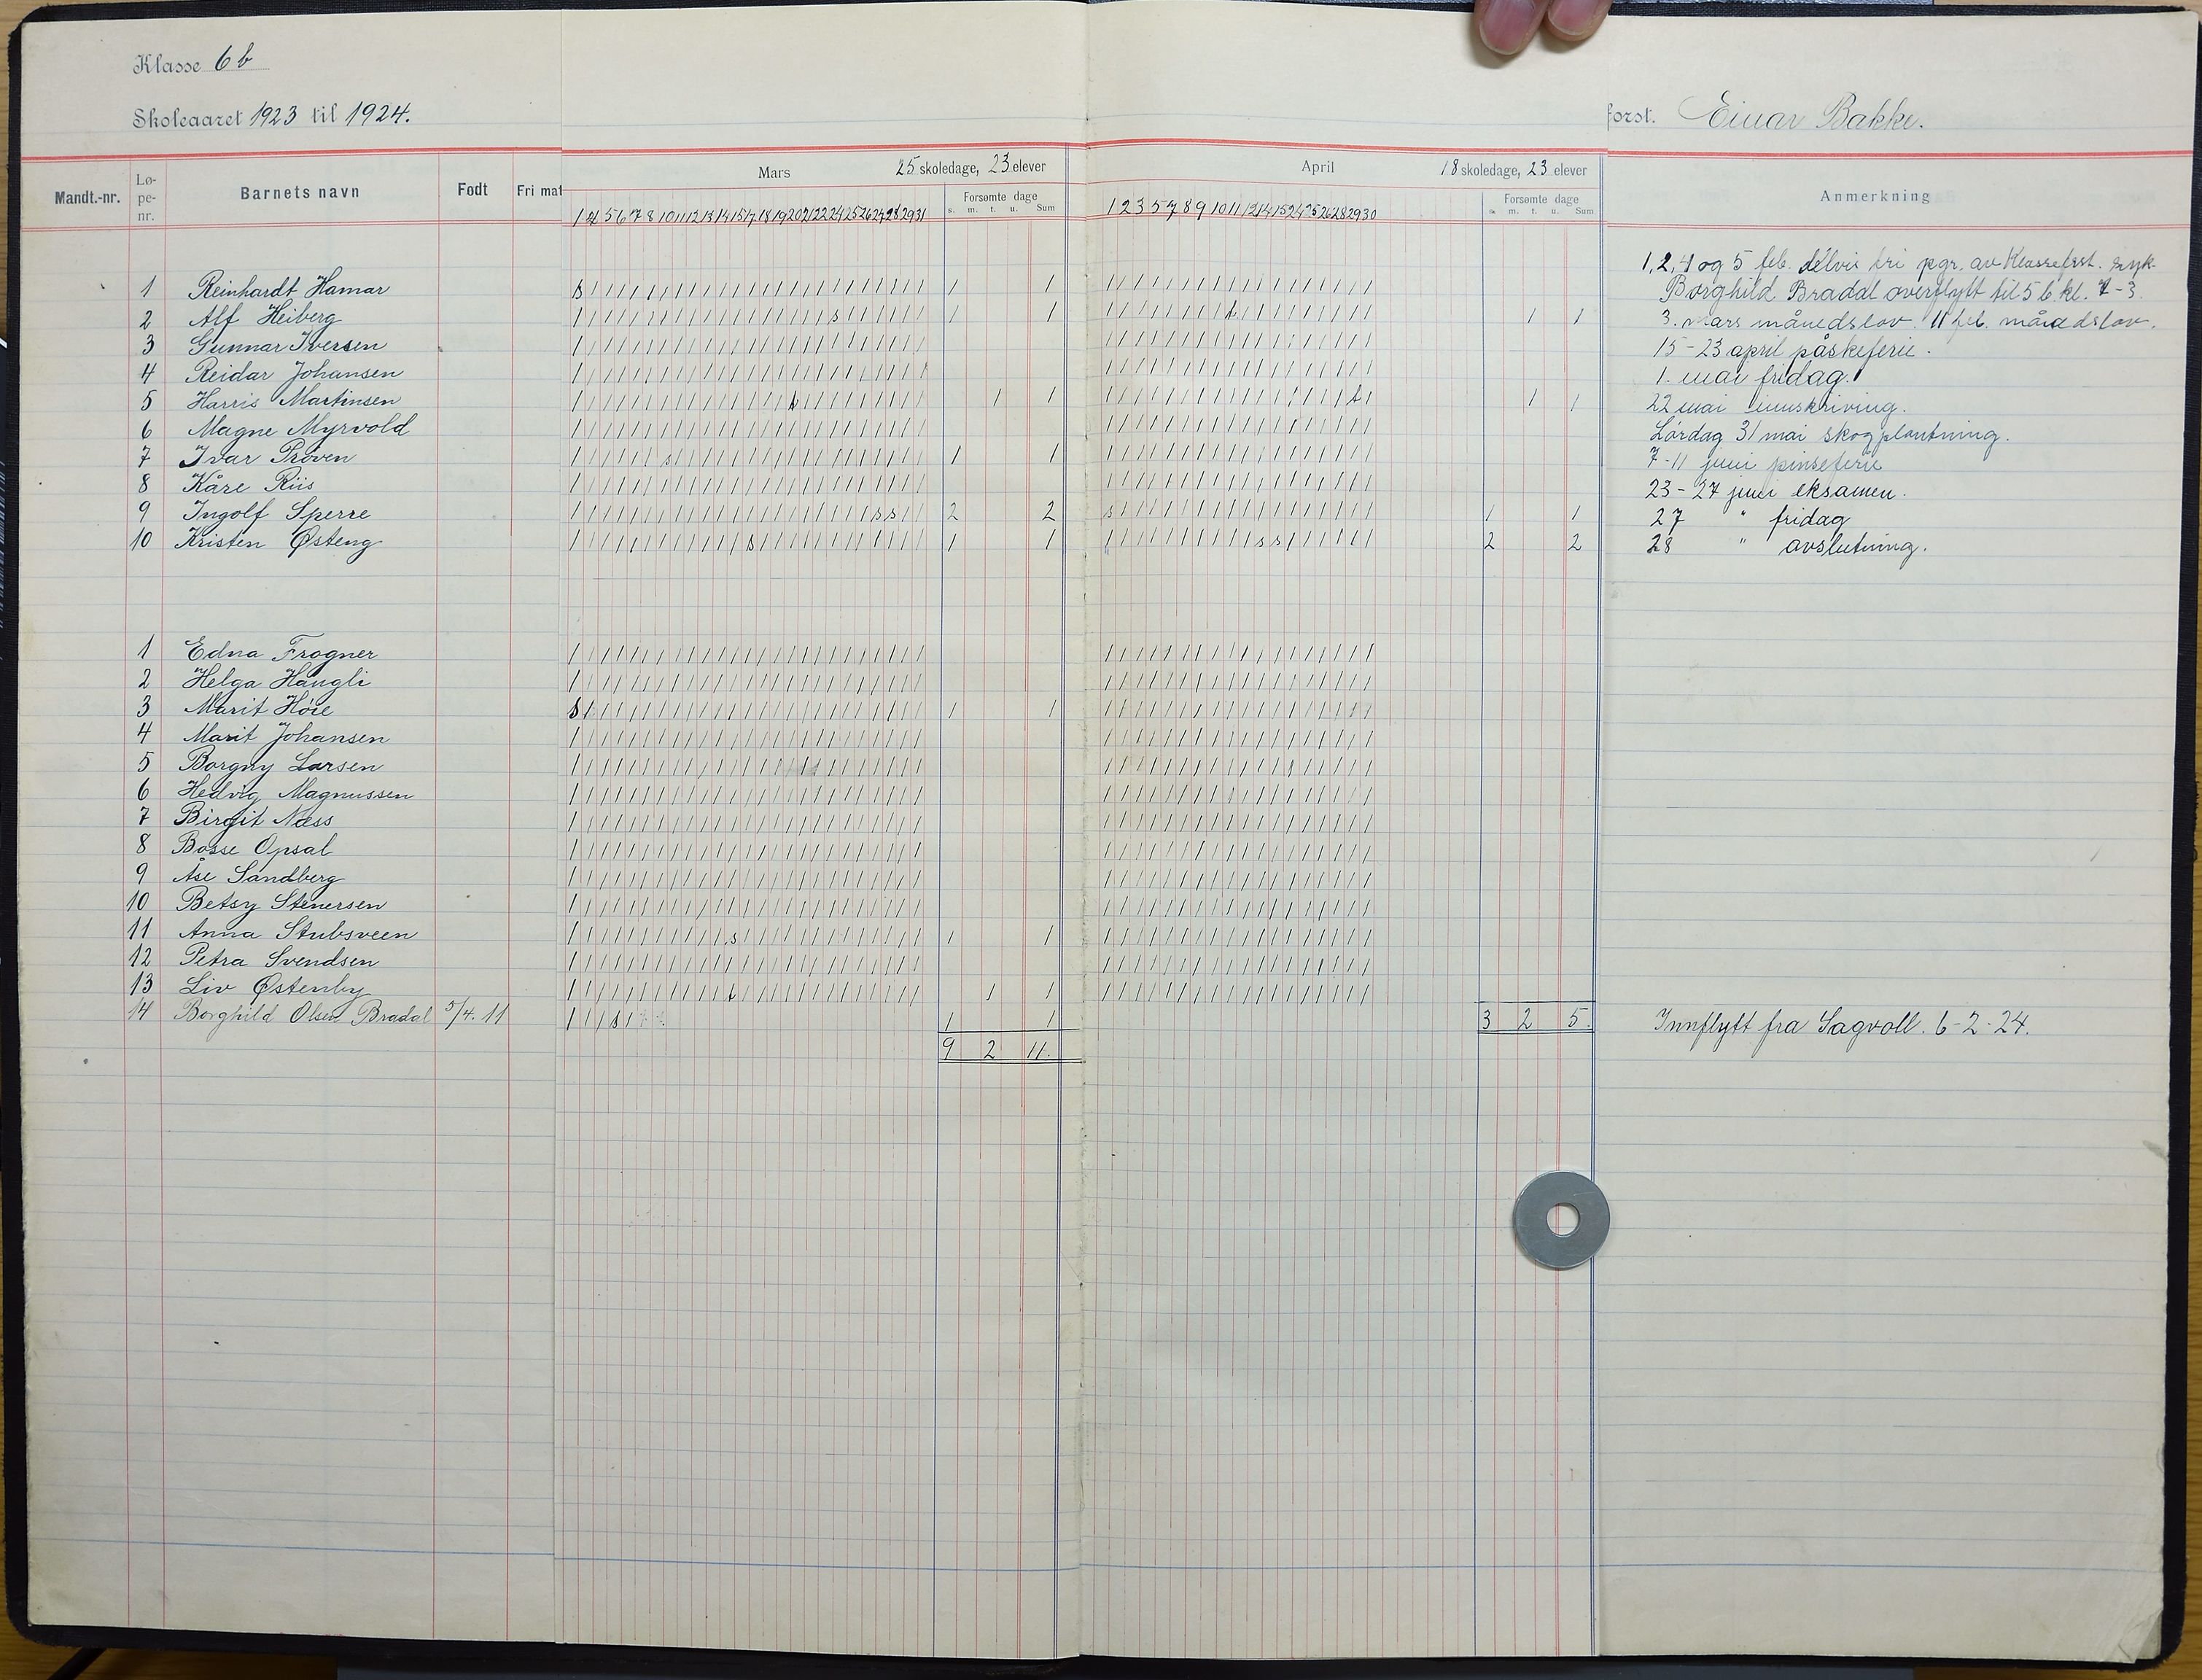 Klasse 6 b
Skoleaaret 1923 til 1924.
forst. Einar Bakke.
Mandt.-nr. Lø-pe-nr. Barnets navn Født Fri mat
Mars 25 skoledage, 23 elever
Forsømte dage
s. m. t. u. Sum
1 4 5 6 7 8 10 11 12 13 14 15 17 18 19 20 21 22 24 25 26 27 28 29 31
April 18 skoledage, 23 elever
Forsømte dage
s. m. t. u. Sum
1 2 3 5 7 8 9 10 11 12 14 15 24 25 26 28 29 30
Anmerkning
1, 2, 4 og 5 feb. delvis fri pgr. av Klasseforst. syk.
1 Reinhardt Hamar s 1 1 Borghild Bradal overflytt til 5 b kl. 7-3.
2 Alf Heiberg s 1 1 t 1 1 3. mars månedslov. 11 feb. månedslov.
3 Gunnar Iversen 15-23 april påskeferie.
4 Reidar Johansen 1. mai fridag.
5 Harris Martinsen t 1 1 t 1 1 22 mai innskriving.
6 Magne Myrvold Lørdag 31 mai skogplantning.
7 Ivar Prøven s 1 1 7-11 juni pinseferie
8 Kåre Riis 23-27 juni eksamen.
9 Ingolf Sperre s s 2 2 s 1 1 27 " fridag
10 Kristen Østeng s 1 1 s s 2 2 28 " avslutning.
1 Edna Frogner
2 Helga Haugli
3 Marit Høie s 1 1
4 Marit Johansen
5 Borgny Larsen
6 Hedvig Magnussen
7 Birgit Næss
8 Bosse Opsal
9 Åse Sandberg
10 Betsy Stenersen
11 Anna Stubsveen s 1 1
12 Petra Svendsen
13 Liv Østenby t 1 1
14 Borghild Olsen Bradal 5/4. 11 s 1 1 3 2 5. Innflytt fra Sagvoll. 6-2-24.
9 2 11.